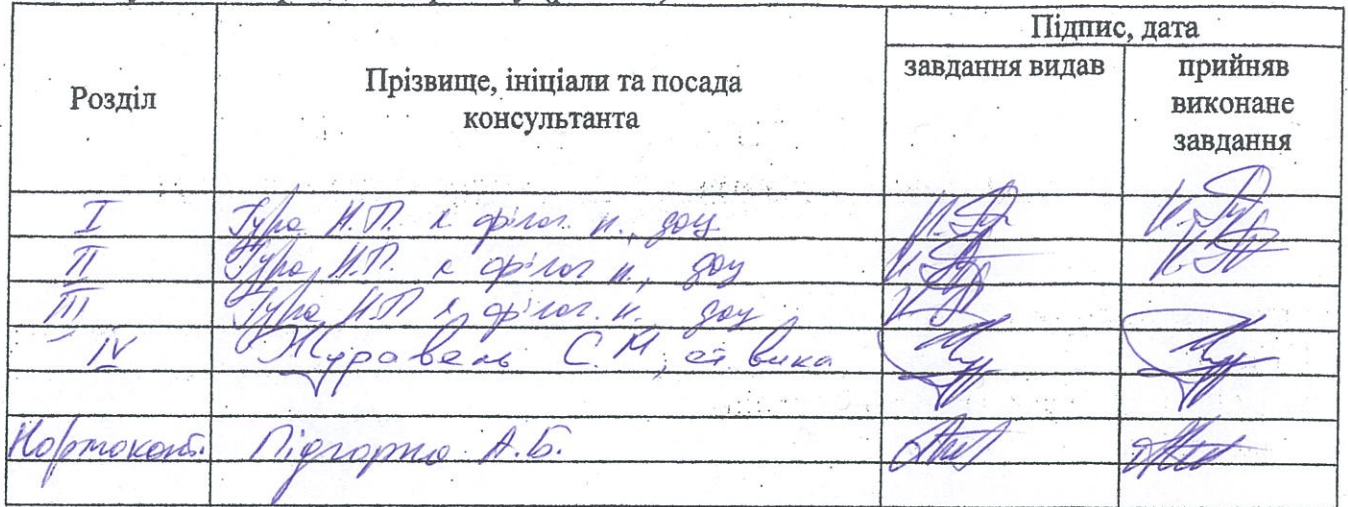 Підпис, дата
Розділ Прізвище, ініціали та посада консультанта завдання видав прийняв виконане завдання
I Гура Н.П. к філол. н., доц
II Гура Н.П. к філол н., доц
III Гура Н.П к філол. н. доц
IV Журавель С.М, ст. викл
Нормоконт. Підгорна А.Б.